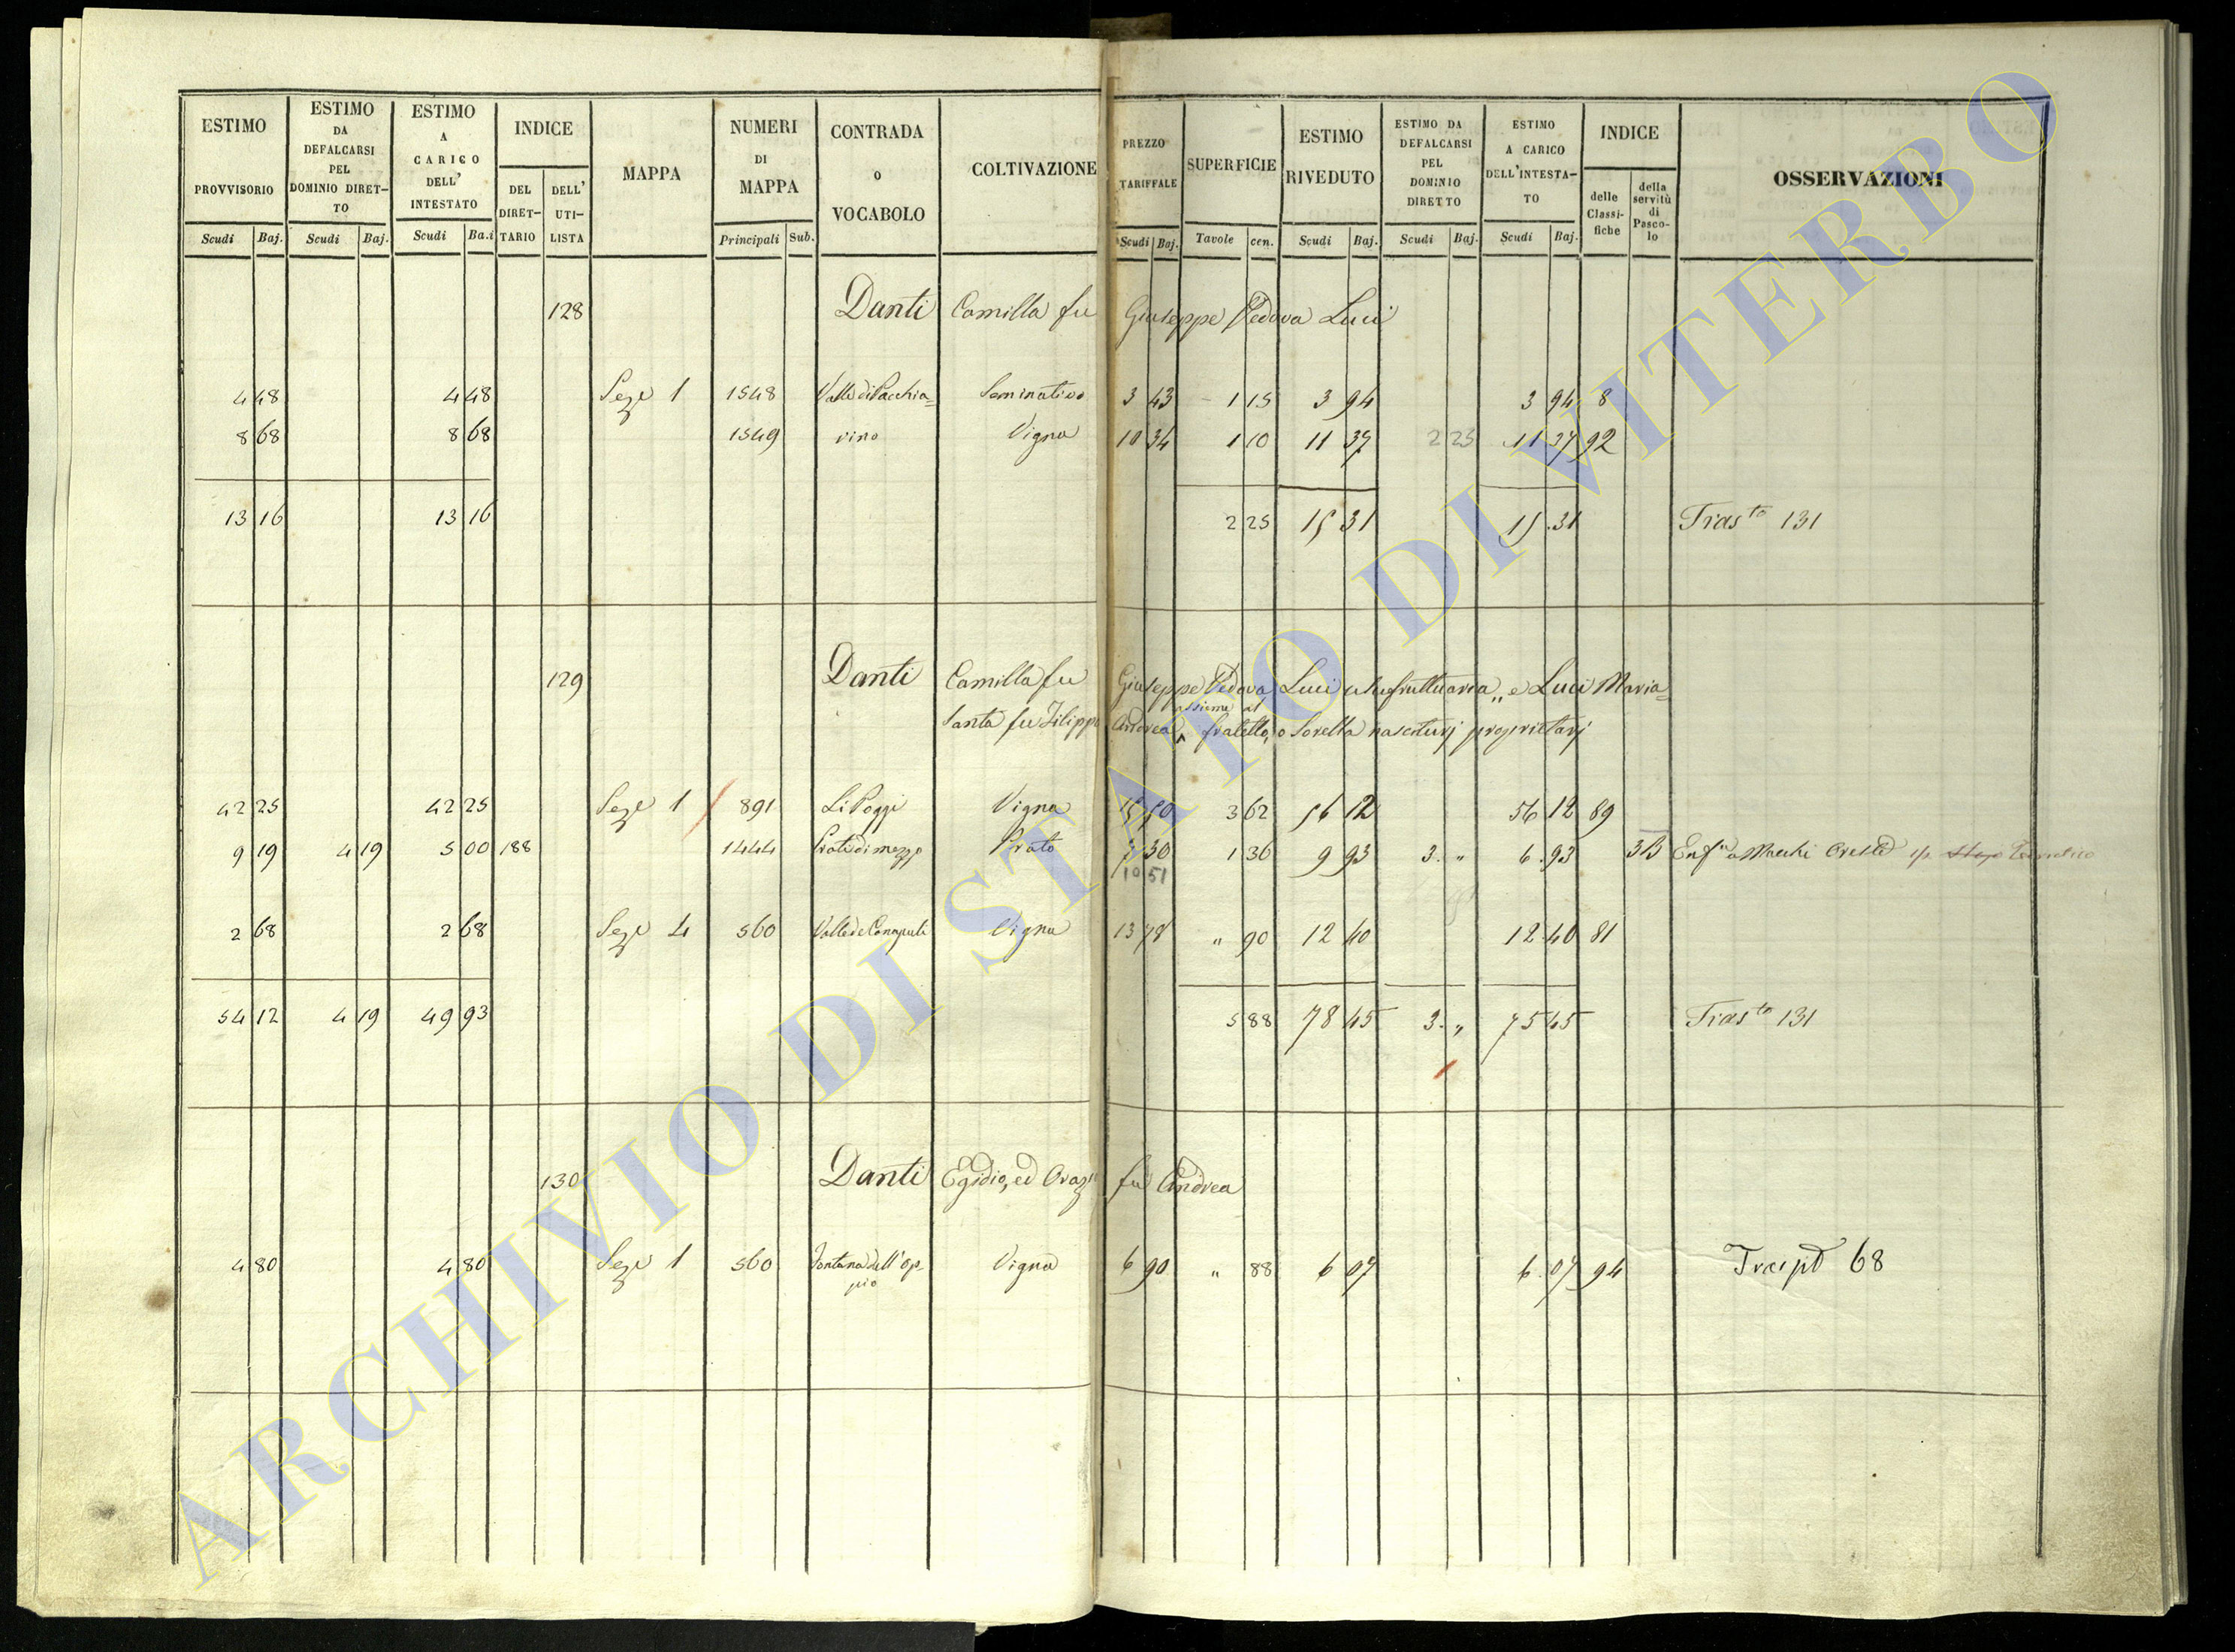 ESTIMO PROVVISORIO Scudi Baj. | ESTIMO DA DEFALCARSI PEL DOMINIO DIRET-TO Scudi Baj. | ESTIMO A CARICO DELL' INTESTATO Scudi Ba.i | INDICE DEL DIRET-TARIO DELL' UTI-LISTA | MAPPA | NUMERI DI MAPPA Principali Sub. | CONTRADA o VOCABOLO | COLTIVAZIONE | PREZZO TARIFFALE Scudi Baj. | SUPERFICIE Tavole cen. | ESTIMO RIVEDUTO Scudi Baj. | ESTIMO DA DEFALCARSI PEL DOMINIO DIRETTO Scudi Baj. | ESTIMO A CARICO DELL'INTESTA-TO Scudi Baj. | INDICE delle Classi-fiche della servitù di Pasco-lo | OSSERVAZIONI
128 Danti Camilla fu Giuseppe Vedova Luci
4 48 4 48 Sez.e 1 1548 Valle di Pacchia= Seminativo 3 43 1 15 3 94 3 94 8
8 68 8 68 1549 rino Vigna 10 34 1 10 11 37 2 23 11 37 92
13 16 13 16 2 25 15 31 15 .31 Tras.to 131
129 Danti Camilla fu Giuseppe Vedova Luci usufruttuaria,, e Luci Maria=
assieme al
Santa fu Filippo Andrea fratello, o sorella nascituri proprietarj
42 25 42 25 Sez.e 1 891 Li Poggi Vigna 15 50 3 62 56 12 56 12 89
9 19 4 19 5 00 188 1444 Prati di mezzo Prato 7 30 1 36 9 93 3. " 6 .93 3B Enf.a a Macchi Oreste
10 51
2 68 2 68 Sez.e 4 560 Vigna 13 78 " 90 12 40 12 40 81
54 12 4 19 49 93 5 88 78 45 3. " 75 45 Tras.to 131
130 Danti Egidio, ed Orazio fu Andrea
4 80 4 80 Sez.e 1 560 Fontana dell'op= Vigna 6 90 " 88 6 07 6 .07 94 Trasp.to 68
pio
ARCHIVIO DI STATO DI VITERBO